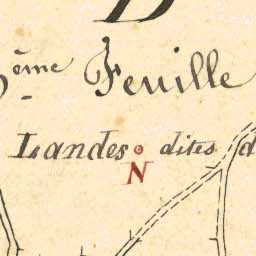 D
ème Feuille
Landes dites d
N